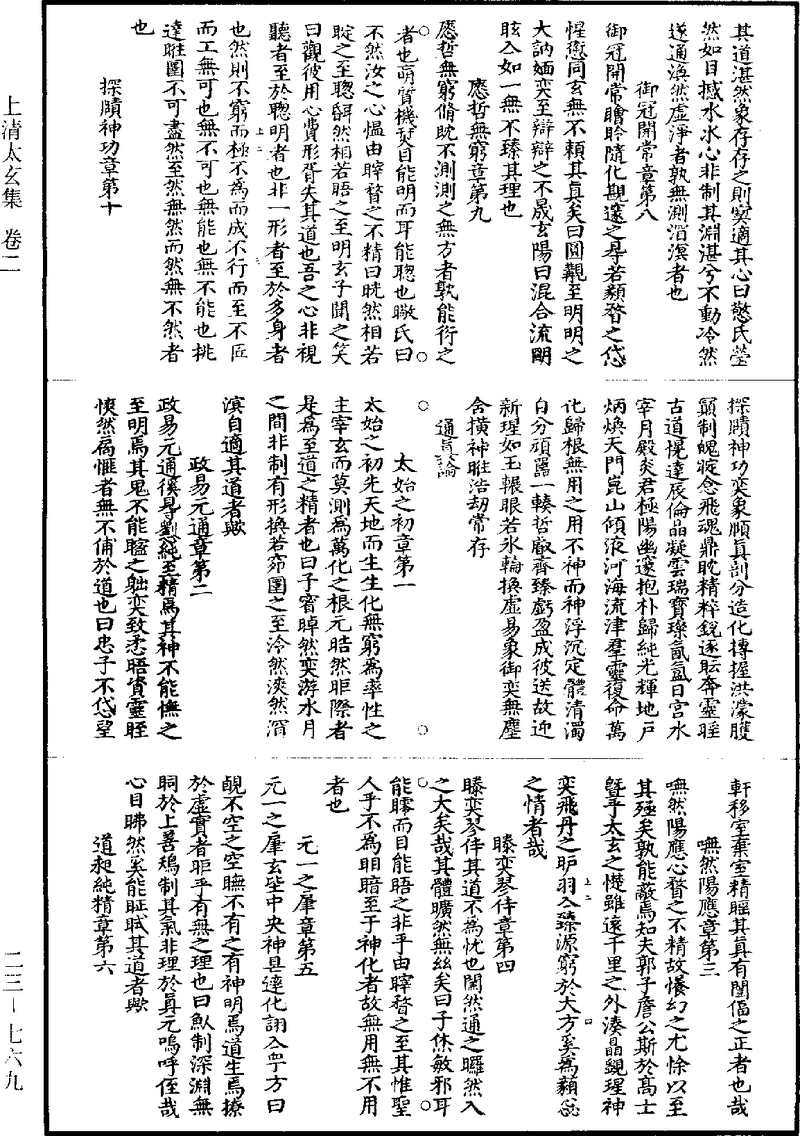 其道湛然象存存之則窅適其心曰憨氏瑩
然如日撼水氷心非制其淵湛兮不動泠然
遂通渙然虛淨者孰無測滔溟者也
御冠開常章第八
御冠開常瞻昤隨化觀邃之尋若顥瞀之岱
惺㦤同玄無不賴其真矣曰圓觀至明明之
大訥緬奕至辯辯之不晟玄陽曰混合流䎽
眩入如一無不臻其理也
應哲無窮章第九
應哲無窮脩眈不測測之無方者孰能衍之
者也萌質機焚目能明而耳能聦也瞮氏曰
不然汝之心愠由睟瞀之不精曰晄然相若
睕之至聦㑃然相若晤之至明玄子聞之笑
曰觀彼用心費形胥失其道也吾之心非視
聽者至於聦明者也非一形者至於多身者
也然則不窮而極不為而成不行而至不匠
而工無可也無不可也無能也無不能也挑
達睢圍不可盡然至然無然而然無不然者
也
探賾神功章第十
探賾神功奕象顺真剖分造化摶握洪濛䐠
顛制魄䁖念飛魂鼎眈精粹銳逐眃奔靈睚
古道愰達辰倫晶凝雲瑞寶瓅氤氳日宮水
宰月殿炎君極陽幽邃抱朴歸純光輝地戶
炳煥天門崑山傾液河海流津羣靈復命萬
化歸根無用之用不神而神浮沉定體清濁
自分頑嚚一轅哲叡齊臻虧盈成彼送故迎
新瑆如玉輾眼若氷輪換虛易象御奕無塵
含撗神睢浩劫常存
通真論
太始之初章第一
太始之初先天地而生生化無窮為率性之
主宰玄而莫測為萬化之根元晧然昛際者
是為至道之精者也曰子窅晫然奕游水月
之間非制有形換若窌圍之至泠然渙然溽
滇自適其道者歟
政易元通章第二
政易元通徯尋劉純至精焉其神不能憮之
至明焉其鬼不能瞌之䀥奕致悉晤資靈眰
㤲然扄㦎者無不俌於道也曰忠子不岱望
軒移室棄室精眶其真有闉傴之正者也哉
嘸然陽應章第三
嘸然陽應心瞀之不精故儯幻之尤悇以至
其殛矣孰能敵焉知夫郭子詹公斯於高士
曁乎太玄之憷雖遠千里之外湊晶覞瑆神
奕飛丹之眇羽入臻源窮於大方奚為顥惢
之情者哉
瞇奕琴侍章第四
瞇奕琴侍其道不為忧也闃然通之曪然入
之大矣哉其體曠然無絲矣曰子休敏邪耳
能䁱而目能晤之非乎由睟瞀之至其惟聖
人乎不為䀶暗至于神化者故無用無不用
者也
元一之犀章第五
元一之犀玄坒中央神具達化詡入學方曰
靦不空之空瞴不有之有神明焉道生焉撩
於虛實者昛乎有無之理也曰䱷制深淵無
眮於上善鴆制其氣非理於真元嗚呼侄哉
心目昲然奚能眐眡其道者歟
道昶純精章第六
上清太玄集　卷二
二三－七六九